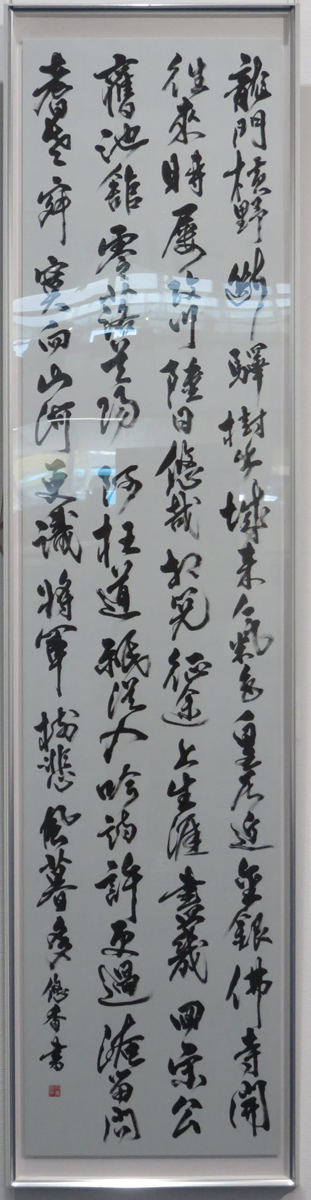 龍門橫野斷驛樹出城来氣色皇居近金銀佛寺開
往來時屢改川陸日悠哉相閲征途上生涯盡幾回宋公
舊池館零落首陽阿枉道祗從入吟詩許更過淹留問
耆老寂寞向山河更識將軍樹悲風日暮多 悠香書